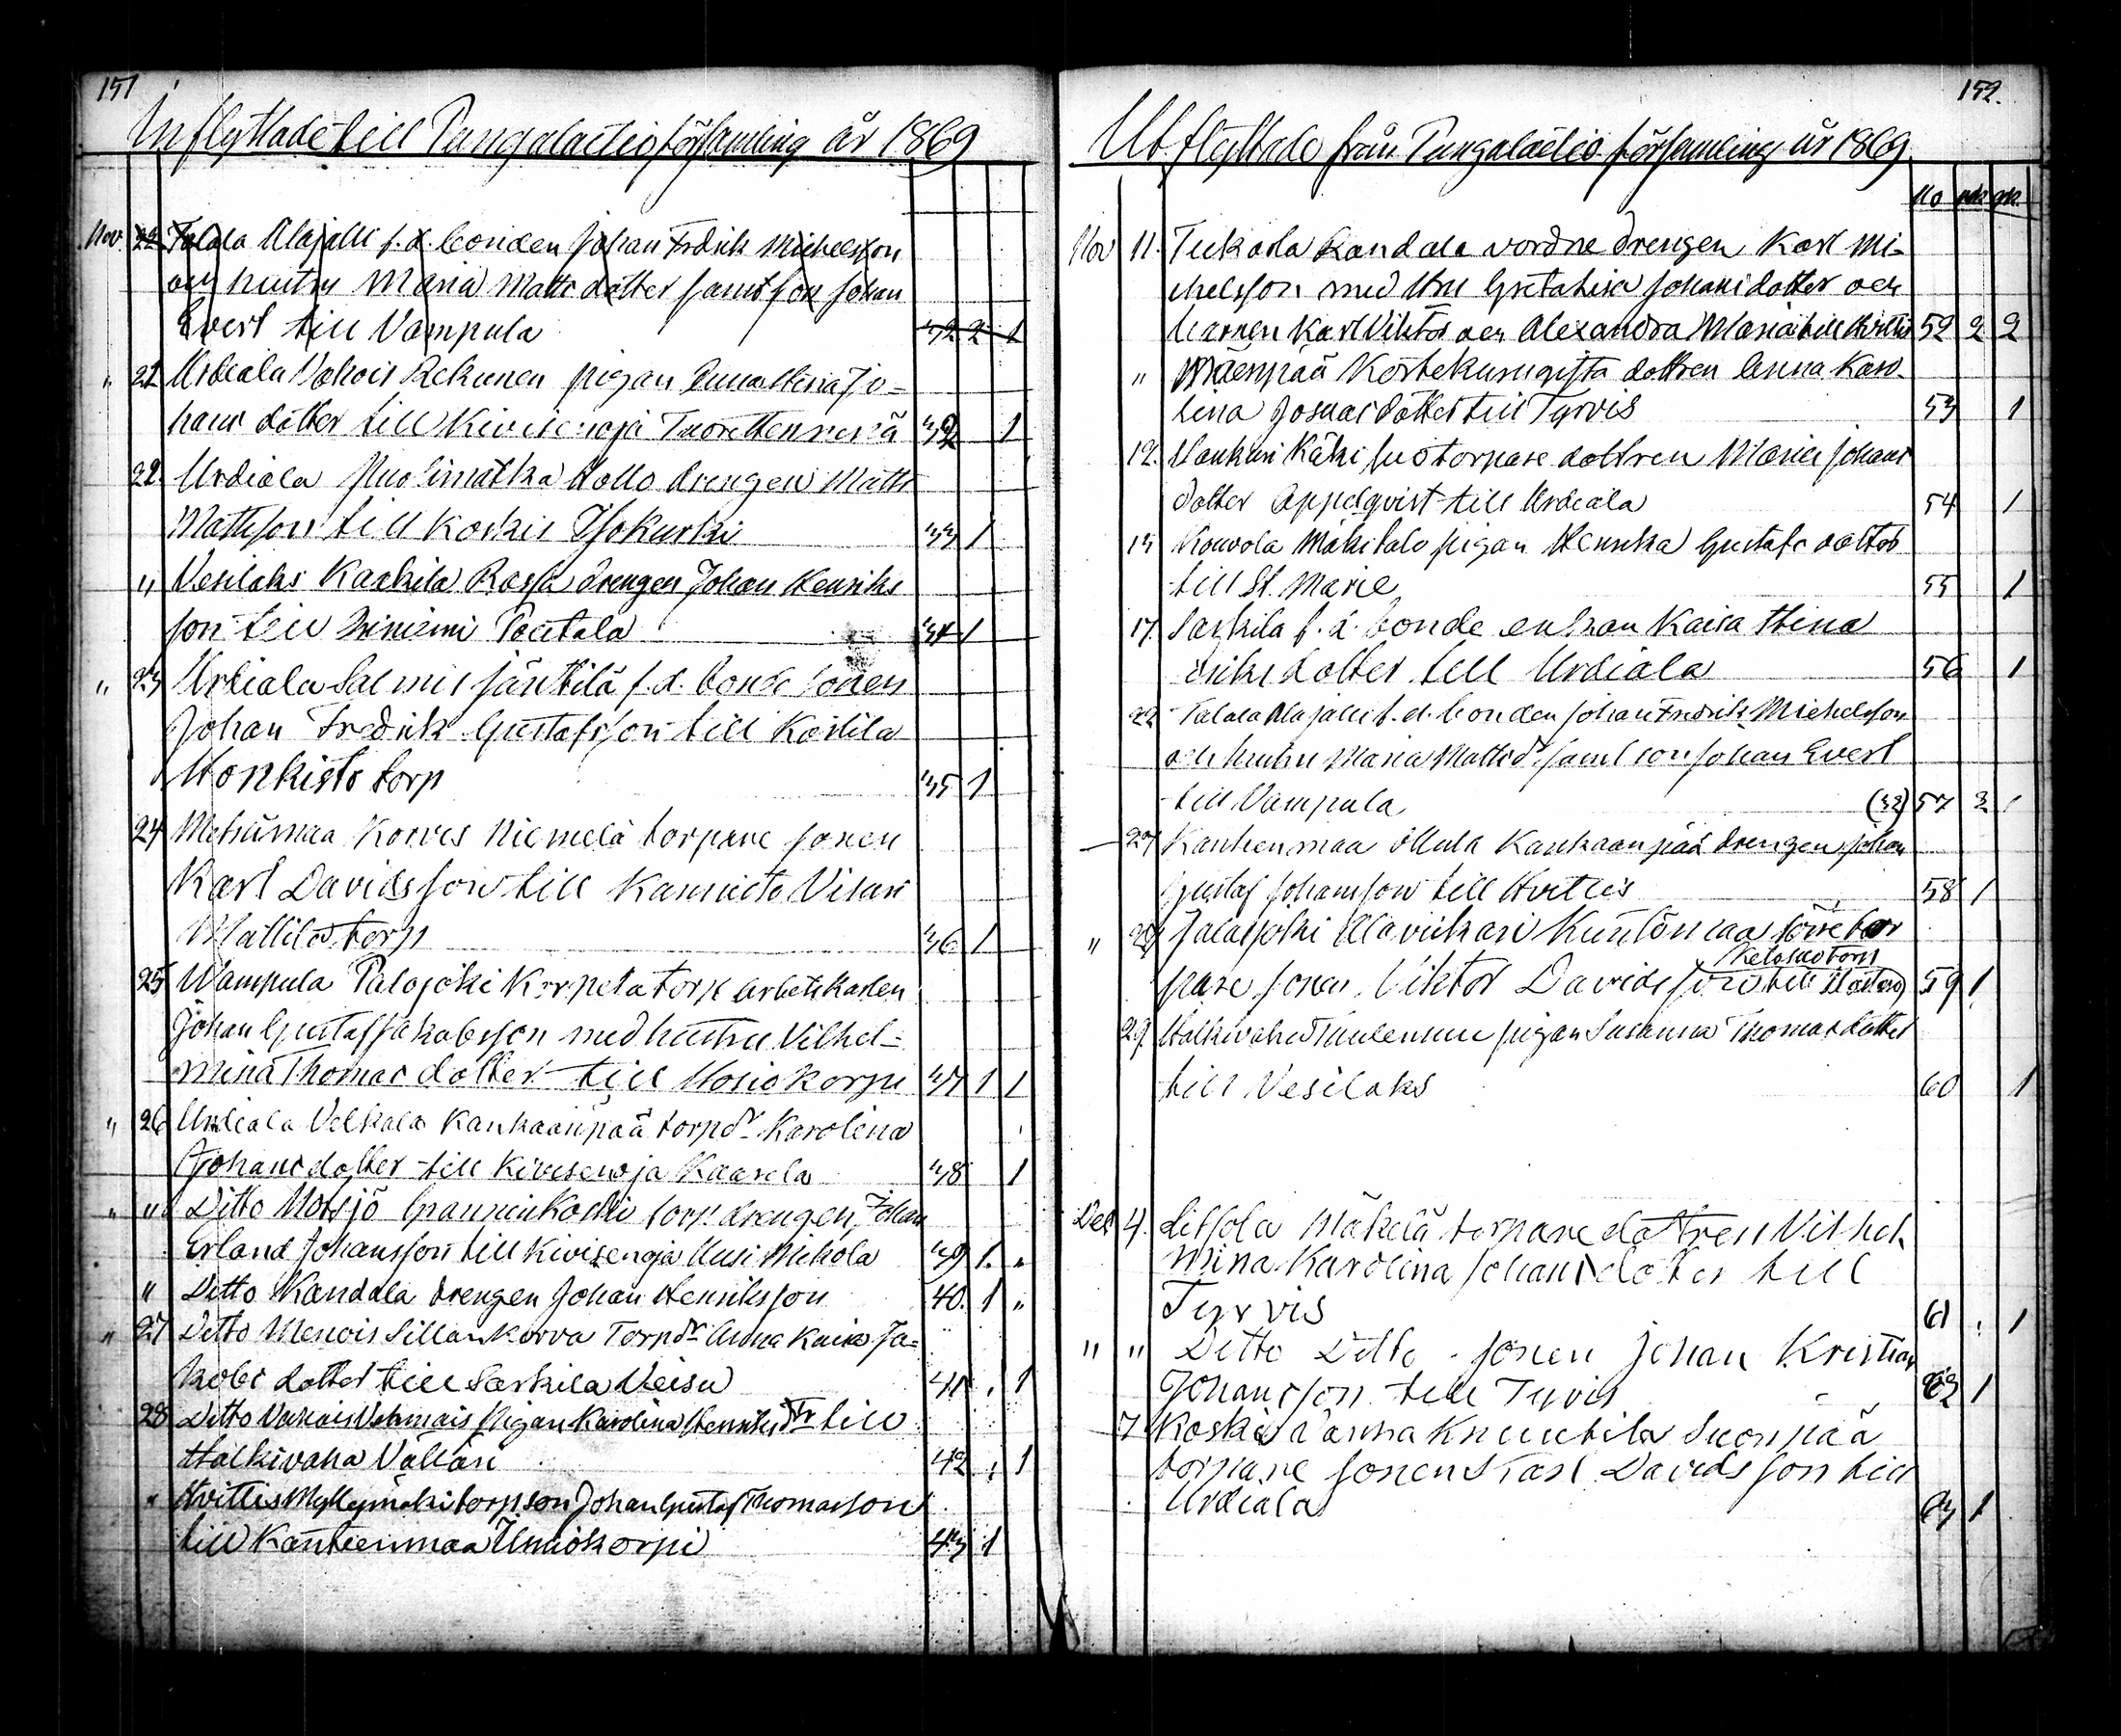 151
Inflyttade till Pungalaitio församling år 1869
Nov. 22 Talala Alajalli f.d. bonden Johan Fredrik Michelsson
och hustru Maria Matts dotter samt son Johan
Evert till Vampula 32 2 1
" 21 Urdiala Vahois Rekunen pigan Anna Stina Jo=
hans dotter till Kivisenoja 32 1
22 Urdiala Puolimatka drengen Matts
Mattsson till Koskis Isokurki 33 1
" Vesilaks Kaakila Rassa drengen Johan Henriks
son till Poutala 34 1
" 23 Urdiala Salmis Jänttilä f.d. bonde sonen
Johan Fredrik Gustafsson till Karkila
Honkisto torp 35 1
24 Metsämaa Korvis Niemelä torpare sonen
Karl Davidsson till Kannisto Visari
Mattila torp 36 1
25 Wampula Palojoki Korpela torp arbetskarlen
Johan Gustaf Jakobsson med hustru Vilhel=
mina Thomas dotter till Hosiokorpi 37 1 1
" 26 Urdiala Velkala Kankaanpää torpdr Karolina
Johans dotter till Kivisenoja Kaarela 38 1
" " Ditto Notsjö torp drengen Johan
Erland Johansson till Kivisenoja Uusi Mikola 39 1 "
" Ditto Kandala drengen Johan Henriksson 40. 1 "
" 27 Ditto Menois Sillankorva Torpdr Anna Kaisa Ja=
kobs dotter till Sarkila Heisu 41 1
28 Ditto Vahois Vehmais Pigan Karolina Henriks dr till
Halkivaha Vällari 42 1
" Hvittis Myllymäki torp son Johan Gustaf Thomasson
till Kanteenmaa Uusikorpi 43 1
152.
Utflyttade från Pungalaitio församling år 1869.
No mk qk.
Nov 11. Tuckorla Kandala vordne drengen Karl Mi=
chelsson med Hru Greta Lisa Johans dotter och
barnen Karl Viktor och Alexandra Maria till Hvittis 52 2 2
" Mäenpää Körtekuru ogifta dottren Anna Karo-
lina Josuas dotter till Tyrvis 53 1
12. Hankuri Kähi torpare dottren Maria Johans
dotter Appelqvist till Urdiala 54 1
13 Kouvola Mäkitalo pigan Henrika Gustafs dotter
till St. Marie 55 1
17. Sarkila f.d. bonde enkan Kaisa Stina
Eriks dotter till Urdiala 56 1
22 Talala Alajalli f.d. bonden Johan Fredrik Michelsson
och hustru Maria Matts dr samt son Johan Evert
till Vampula (32) 57 2 1
27 Kanteenmaa Ollula Kankaanpää drengen Johan
Gustaf Johansson till Hvittis 58 1
" 28 Jalasjoki Alavirkari Kuntonmaa tor
Ketolao torp
pare sonen Viktor Davidsson till 59 1
29. Halkivaha Tuulensuu pigan Susanna Thomas dotter
till Vesilaks 60 1
Dec 4. Liitsola Mäkelä torpare dottren Vilhel-
mina Karolina Johans dotter till
Tyrvis 61 1
" " Ditto Ditto - sonen Johan Kristian
Johansson till Tyrvis 62 1
7 Koskis Vanha Knuutila Suonpää
torpare sonen Karl Davidsson till
Urdiala 63 1